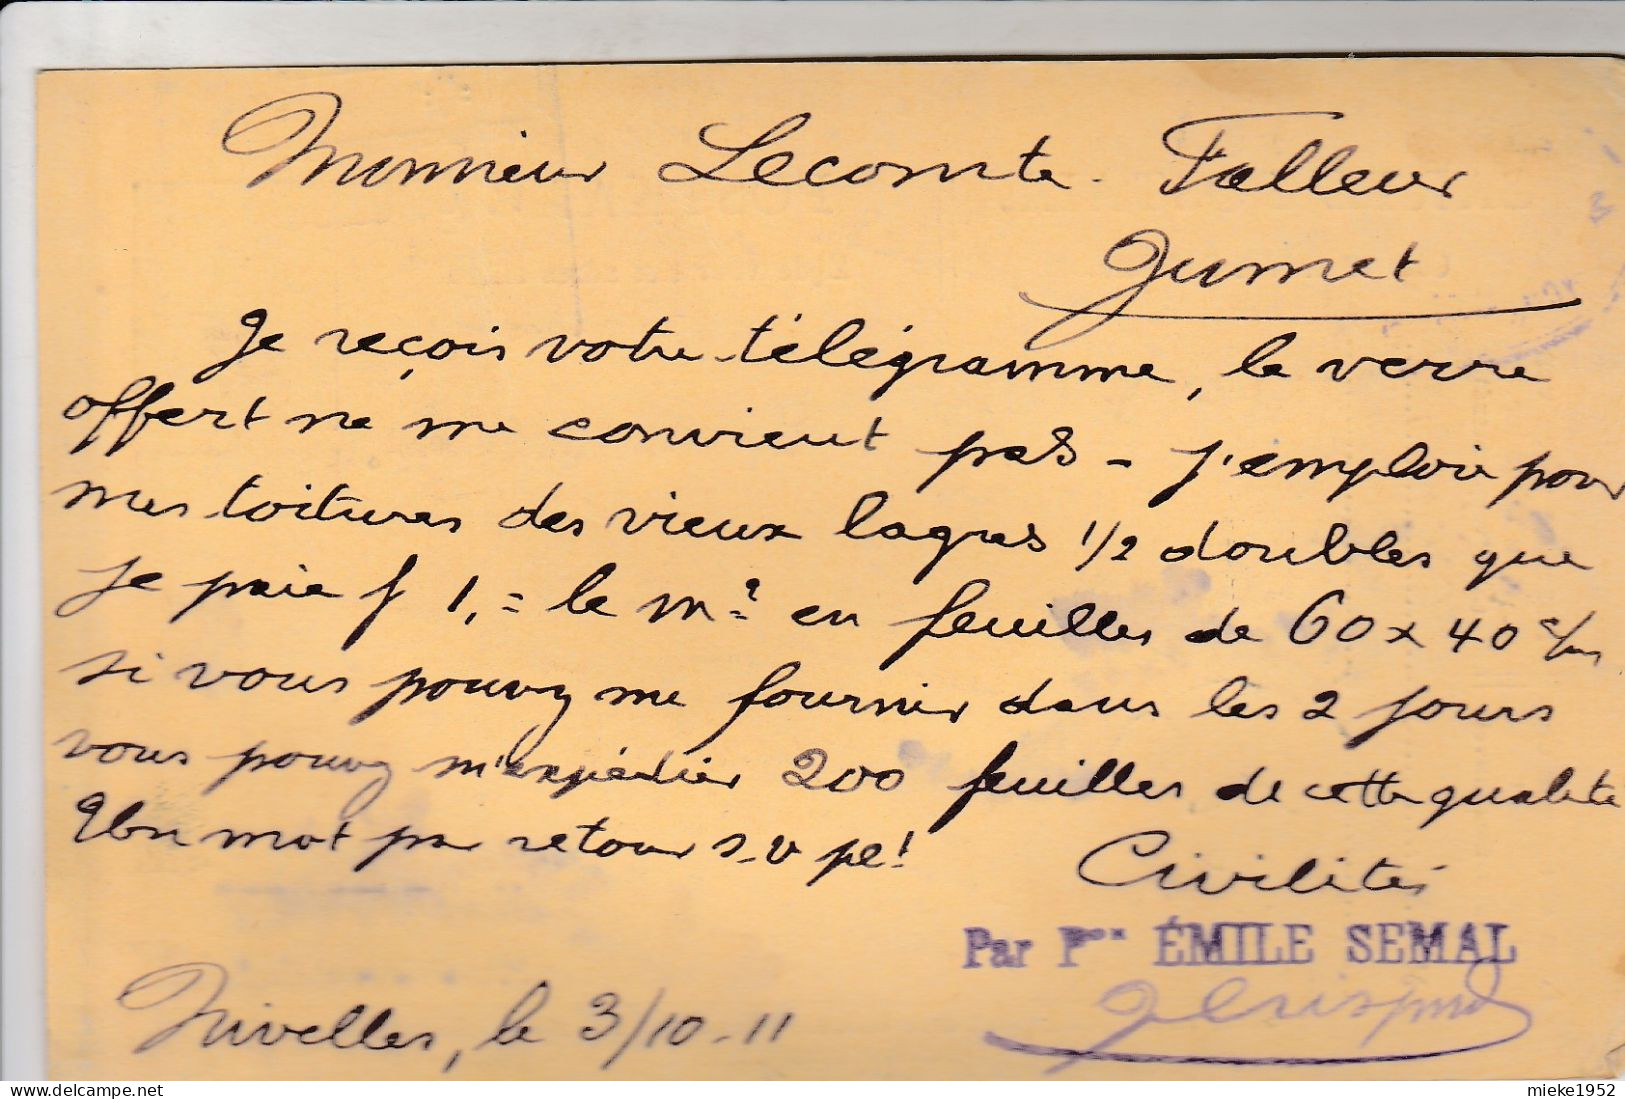 Monsieur Lecomte-Falleur
Jumet
Je reçois votre télégramme, le verre
offert ne me convient pas - j'emploie pour
mes toitures des vieux lagres 1/2 doubles que
je paie f 1,= le m² en feuilles de 60 x 40 c/m
si vous pouvez me fournir dans les 2 jours
vous pouvez m'expédier 200 feuilles de cette qualité
Un mot par retour s.v pl!
Civilités
Par Pon ÉMILE SEMAL
Nivelles, le 3/10-11
mieke1952